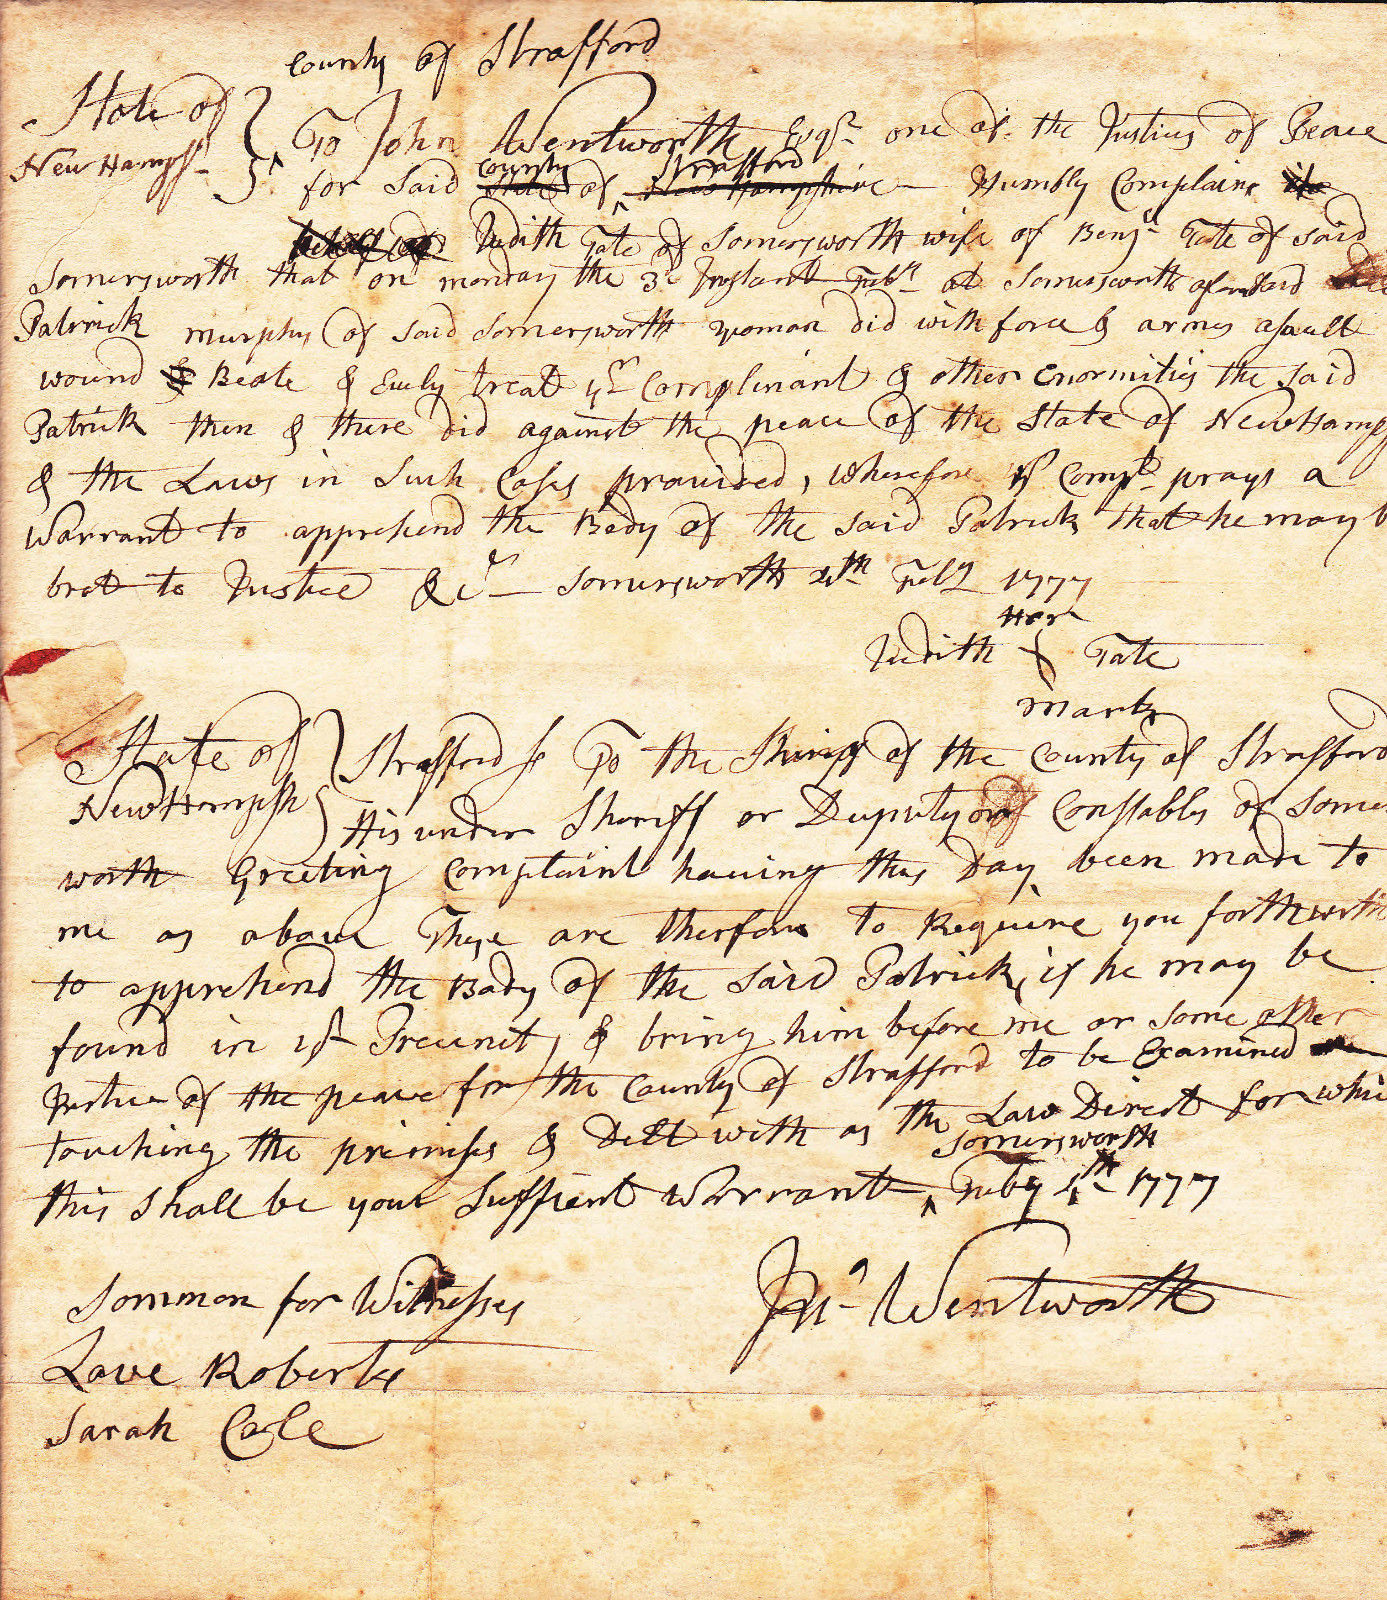 County of Strafford
State of
New Hampsr
To John Wentworth Esqr one of the Justices of Peace
County Strafford
for Said State of New Hampshire Humbly Complains
Judith Tate of Somersworth wife of Benja Tate of Said
Somersworth that on monday the 3d Instant Febr at Somersworth aforesaid
Patrick murphy of Said Somersworth yoman did with force & armes asault
wound & Beate & Evely treat yr Complinant & other Enormities the Said
Patrick then & there did against the peace of the State of NewHamps
& the Laws in Such Cases provided, Wherefore yr Compt prays a
Warrant to apprehend the Body of the Said Patrick that he may b
brot to Justice &c Somersworth 4th Feby 1777
Her
Judith X Tate
mark
State of
NewHampsr
Strafford ss To the Shiriff of the County of Strafford
His under Sheriff or Deputy or Constables of Somers
worth Greeting Complaint having this Day been made to
me as above These are therfore to Require you forthwith
to apprehend the Body of the Said Patrick, if he may be
found in yr Precinct, & bring him before me or Some other
Justice of the peace for the County of Strafford to be Examined
touching the primises & Delt with as the Law Direct for whic
Somersworth
this Shall be your Suffient Warrant ^ Feby 4th 1777
Jna Wentworth
Sommon for Witnesses
Love Roberts
Sarah Cole